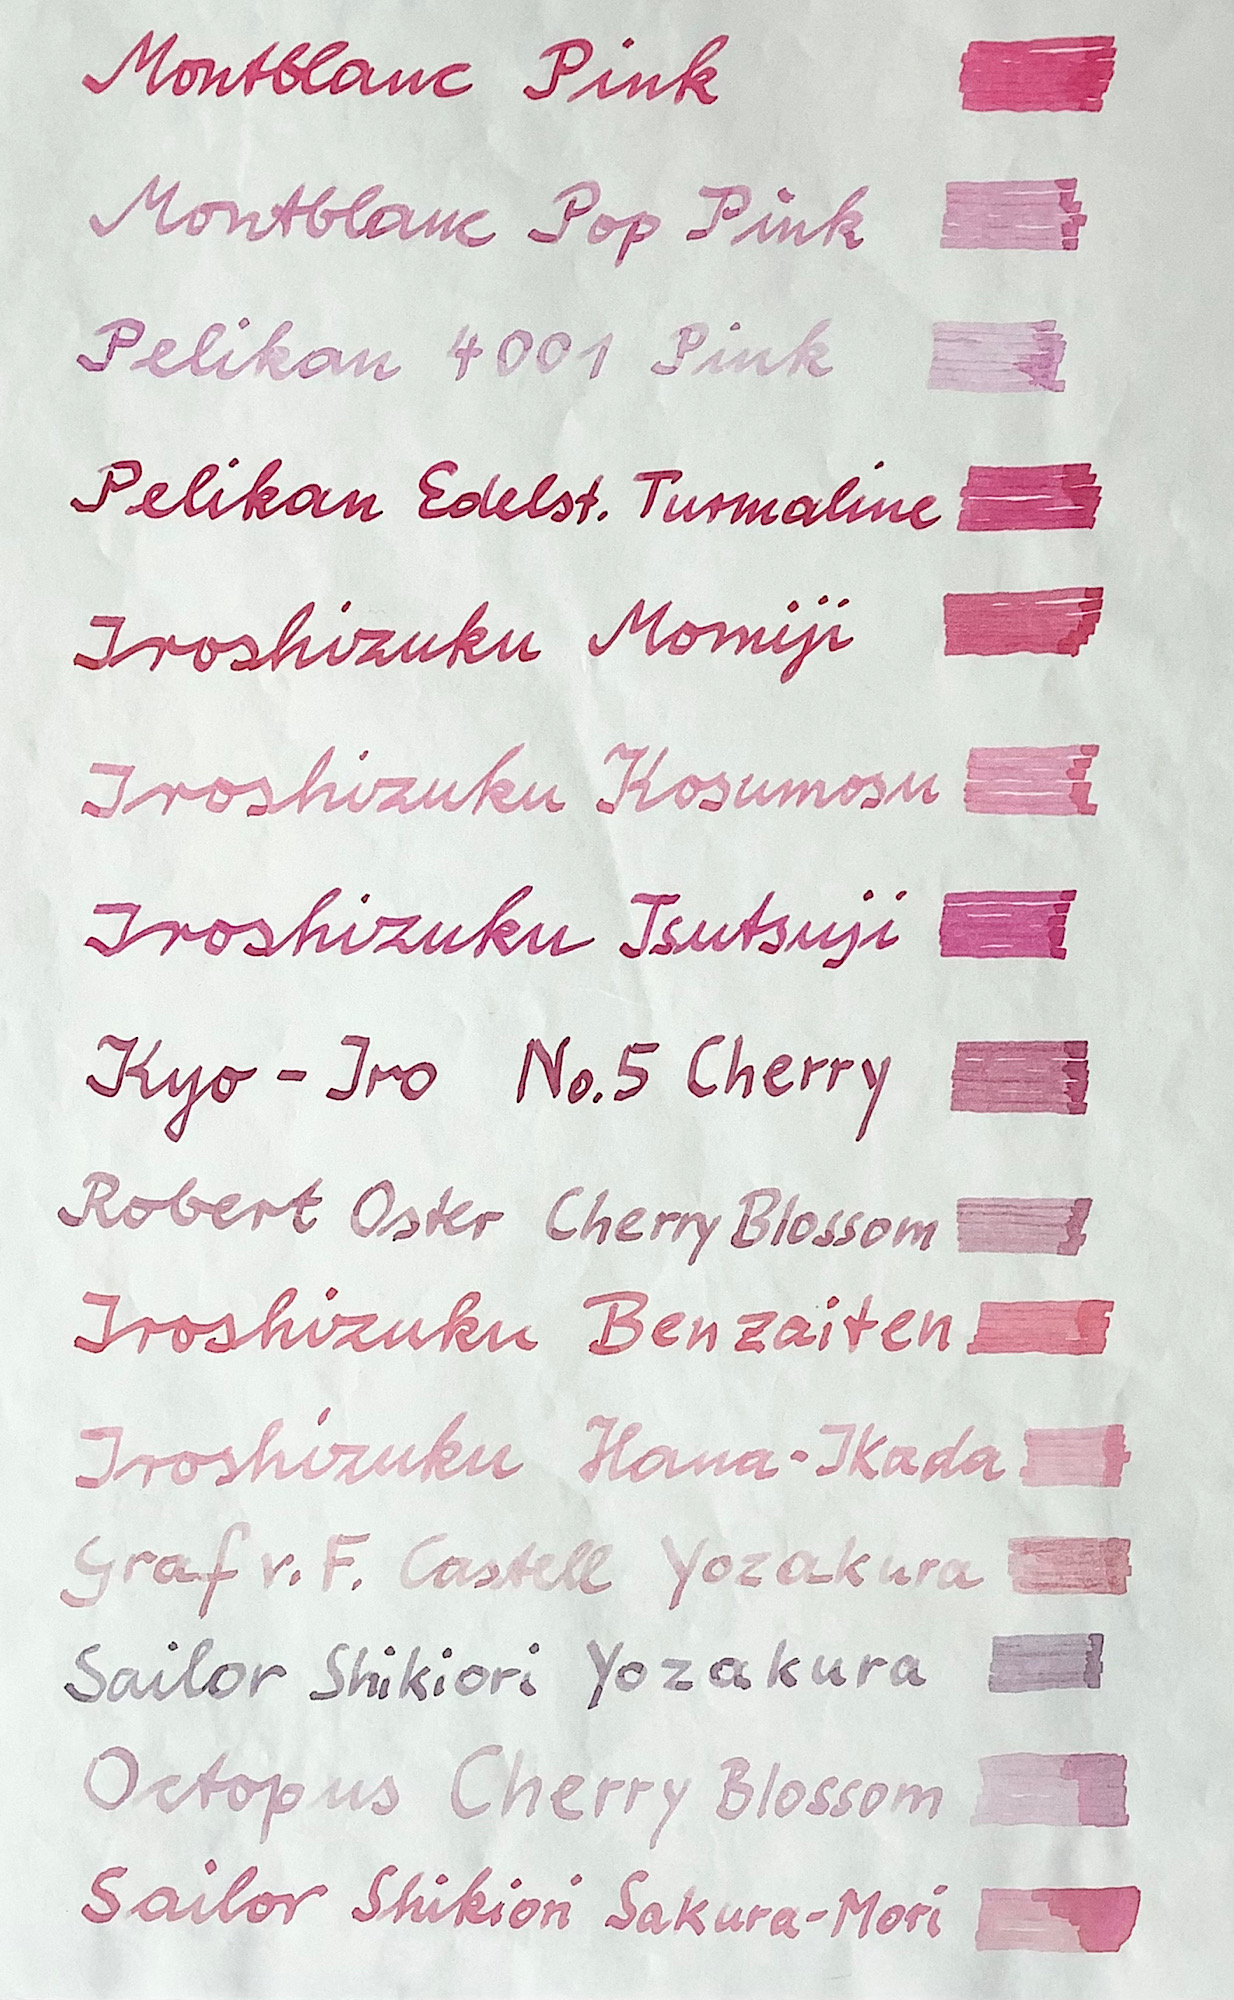 Montblanc Pink
Montblanc Pop Pink
Pelikan 4001 Pink
Pelikan Edelst. Turmaline
Iroshizuku Momiji
Iroshizuku Kosumosu
Iroshizuku Tsutsuji
Kyo-Iro No.5 Cherry
Robert Oster Cherry Blossom
Iroshizuku Benzaiten
Iroshizuku Hana-Ikada
Graf v. F. Castell Yozakura
Sailor Shikiori Yozakura
Octopus Cherry Blossom
Sailor Shikiori Sakura-Mori